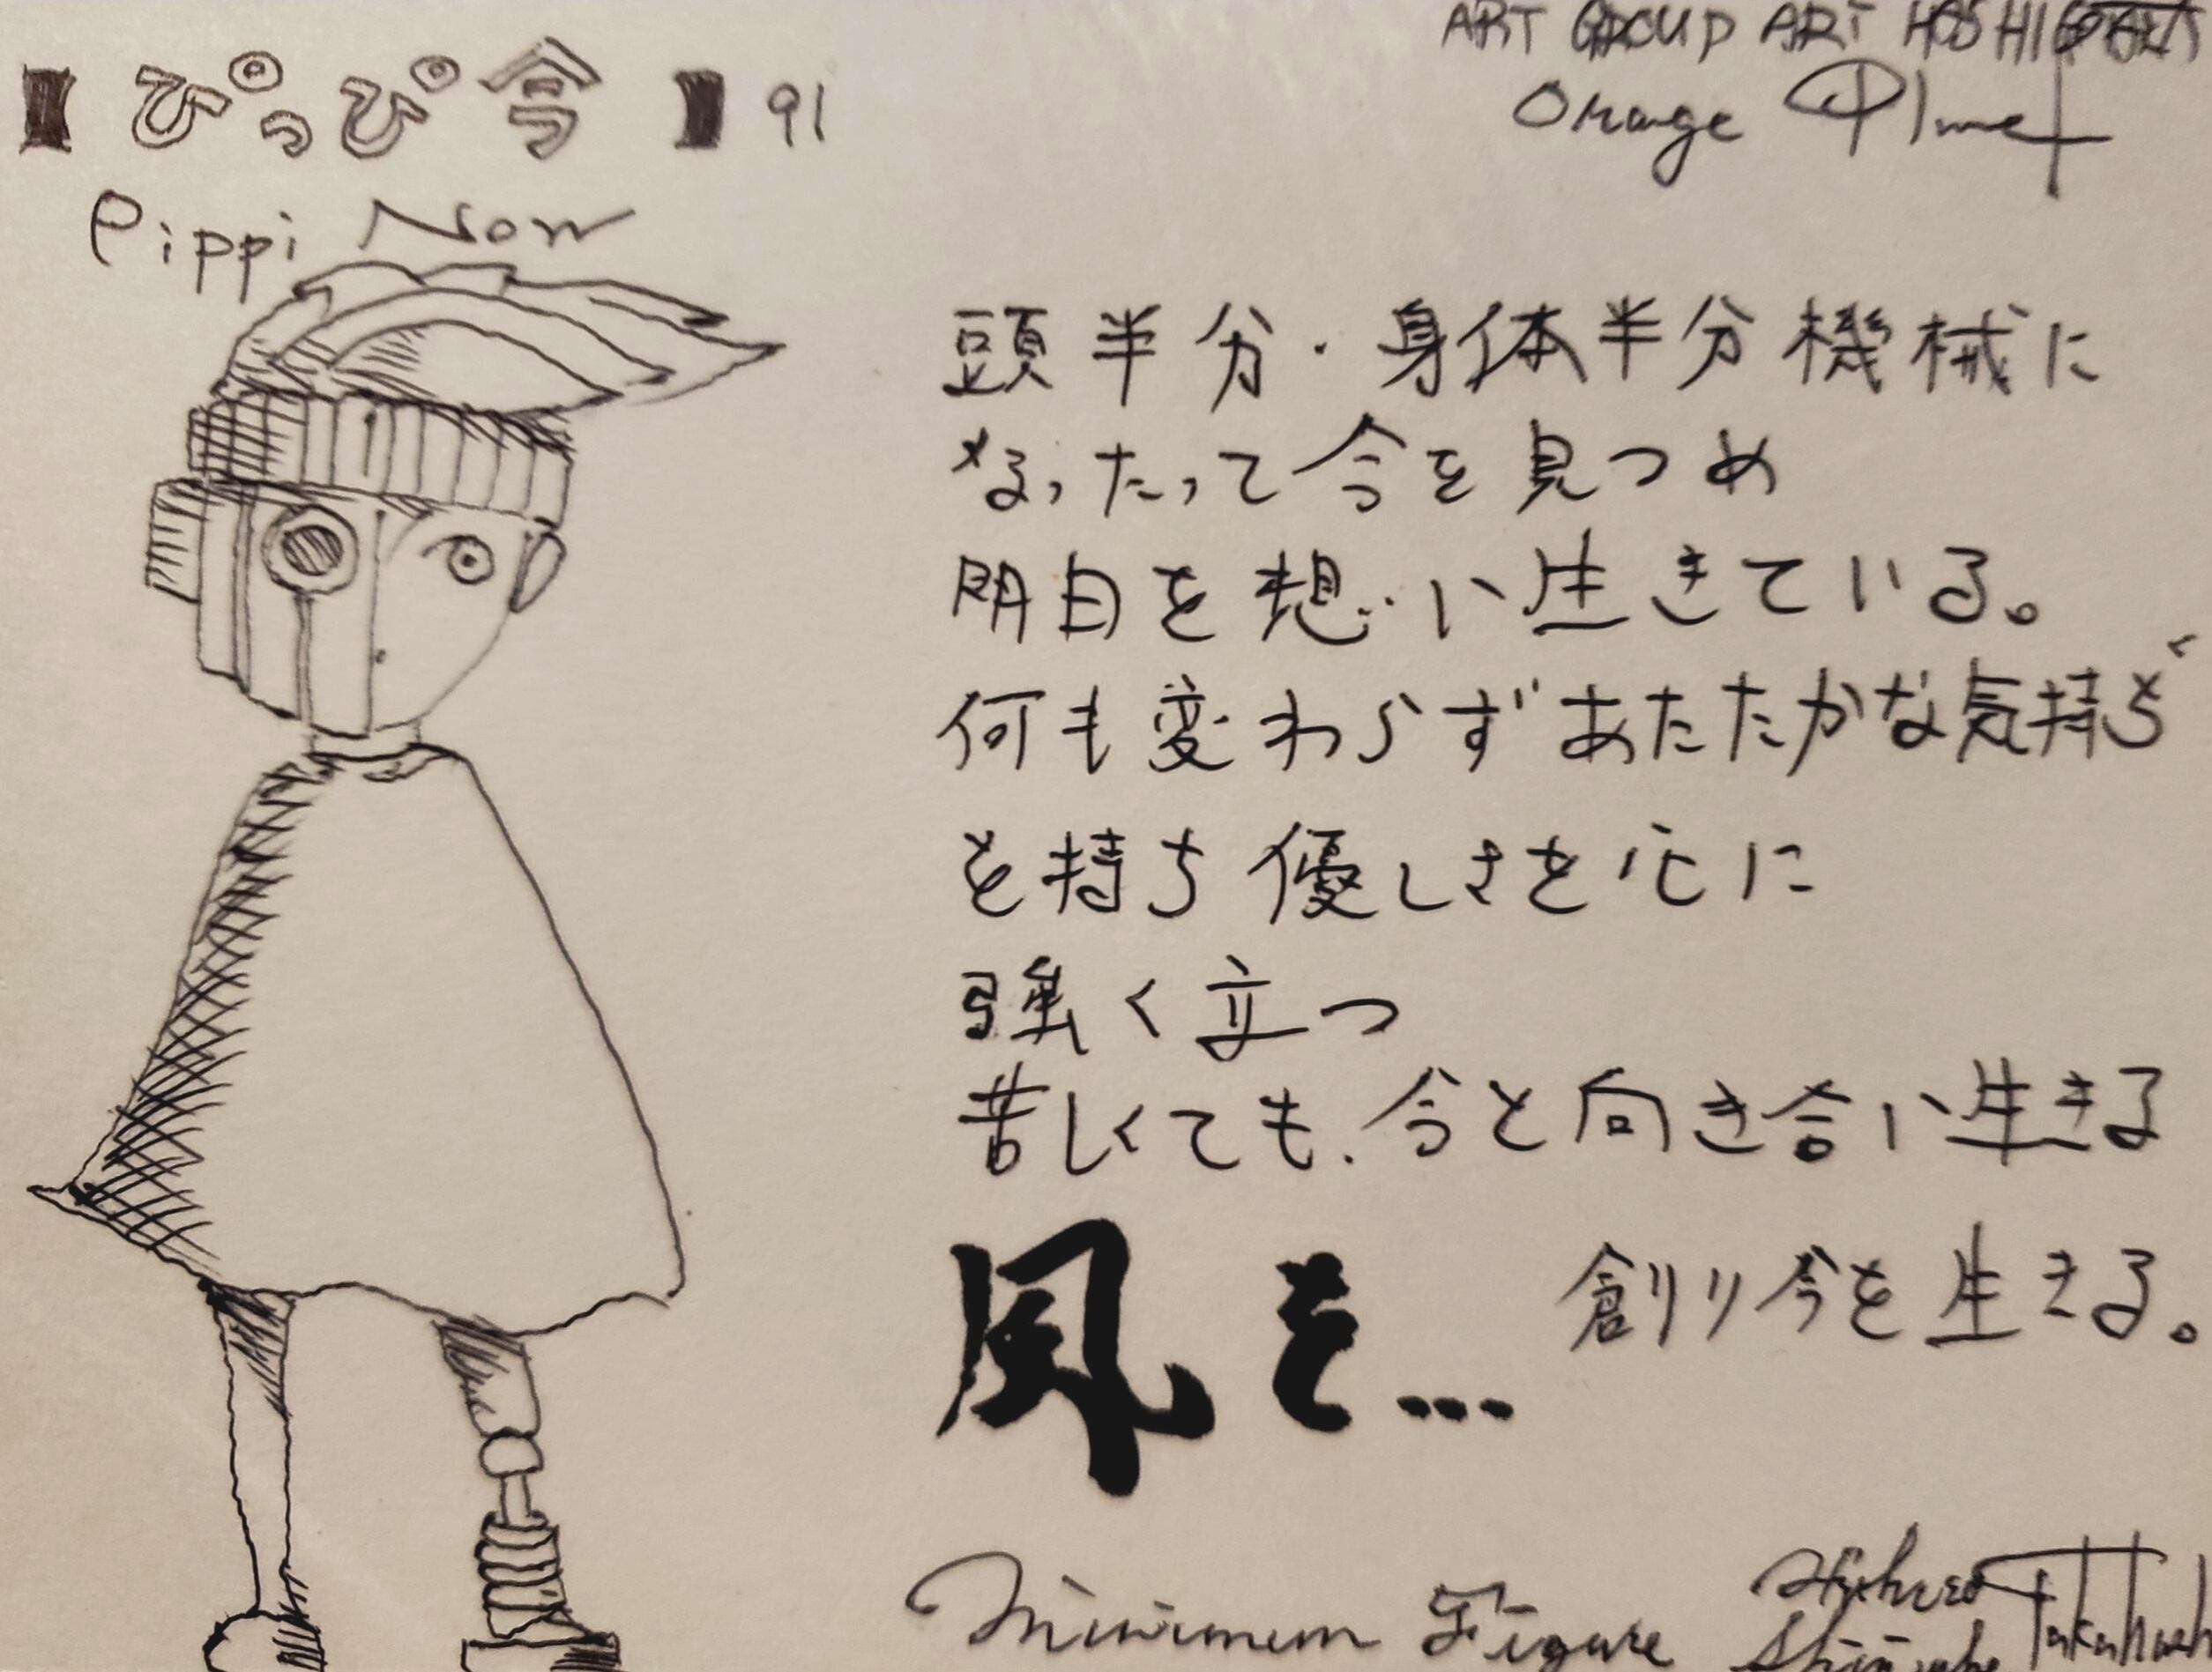 ART GROUP ART HOSHI
Orange Planet
【ぴっぴ今】91
Pippi Now
頭半分・身体半分機械に
なったって今を見つめ
明日を想い生きている。
何も変わらずあたたかな気持ち
を持ち優しさを心に
強く立つ
苦しくても、今と向き合い生きる
風を…創り今を生きる。
Minimum Figure